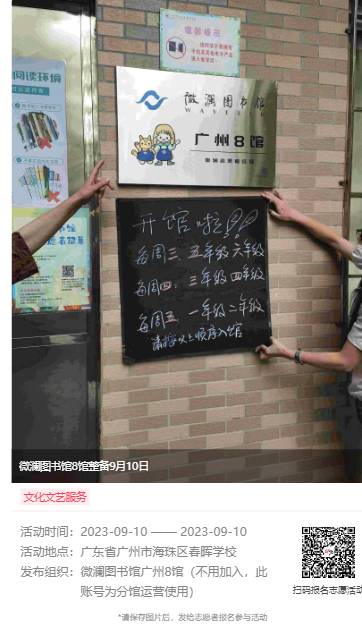 温馨提示
阅读环境
微澜图书馆
广州8馆
开馆啦!!!
每周三 五年级 六年级
每周四: 三年级 四年级
每周五 一年级 二年级
请按以上顺序入馆
微澜图书馆8馆整备9月10日
文化文艺服务
活动时间: 2023-09-10 —— 2023-09-10
活动地点: 广东省广州市海珠区春晖学校
发布组织: 微澜图书馆广州8馆（不用加入，此
账号为分馆运营使用）
扫码报名志愿活动
*请保存图片后，发给志愿者报名参与活动